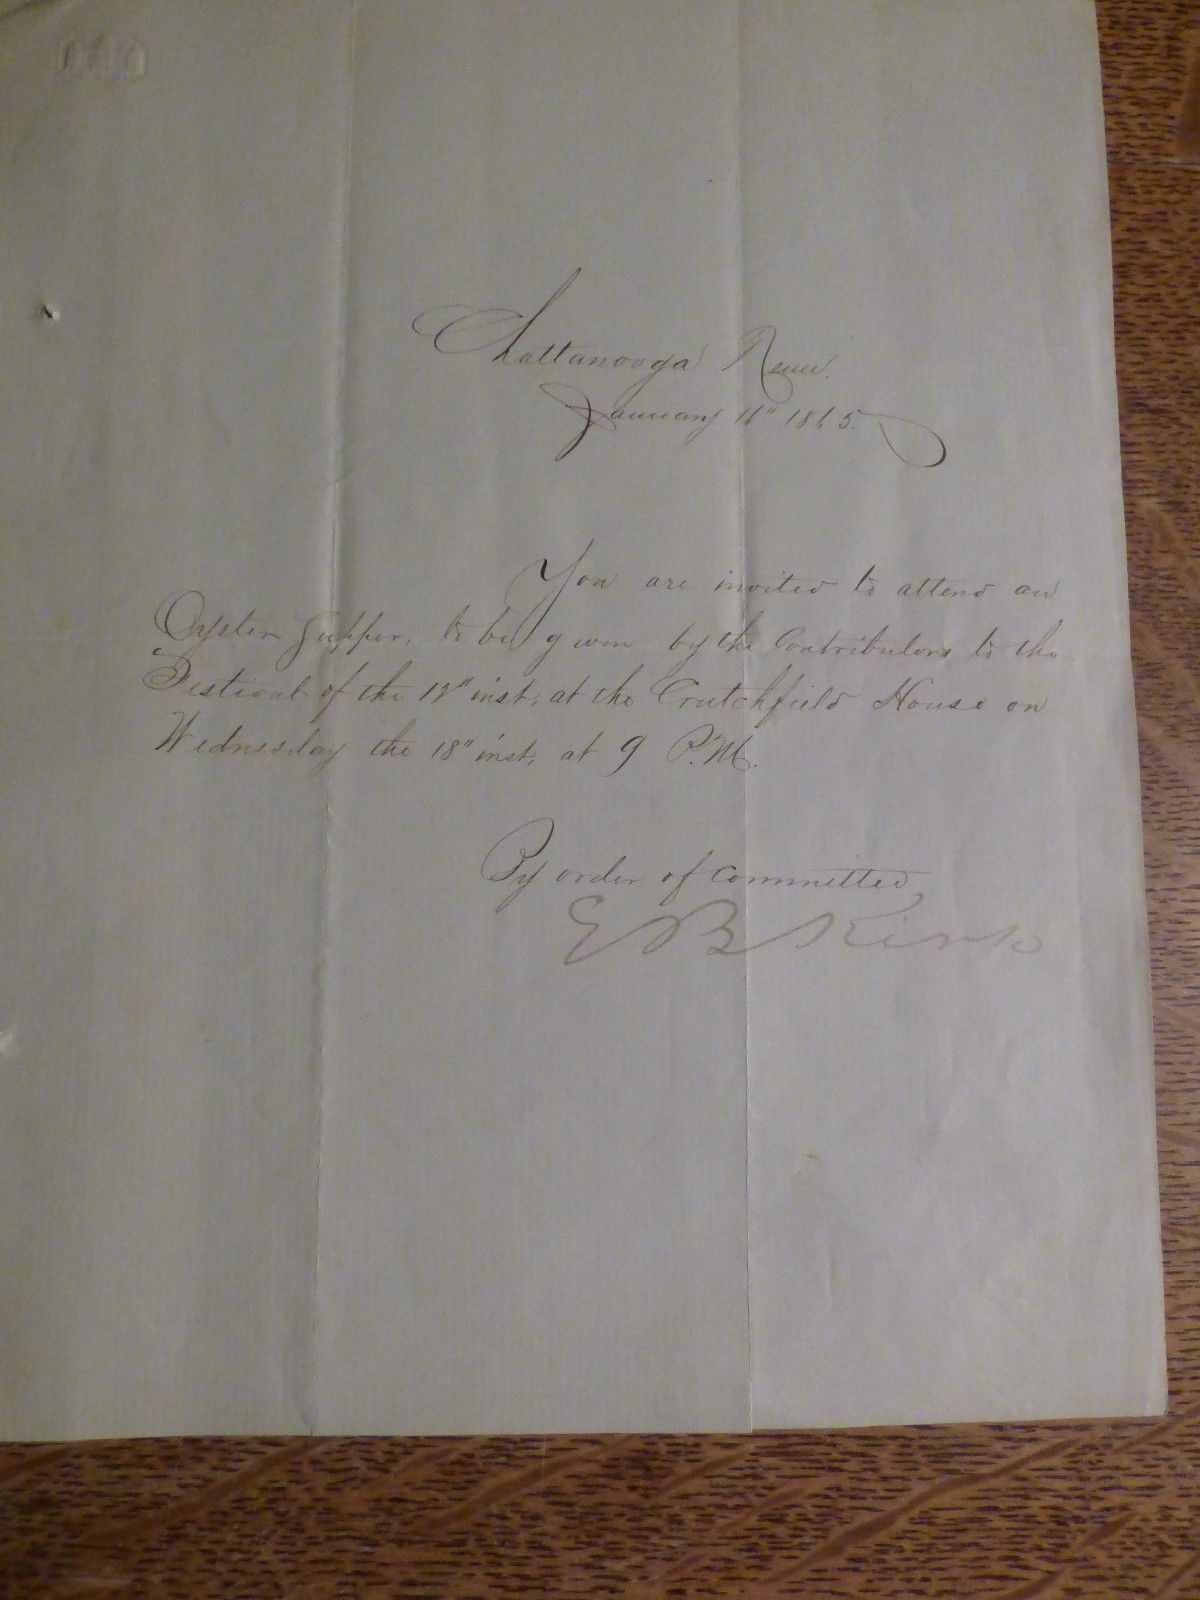 Chattanooga Tenn.
January 16" 1865.
You are invited to attend an
Oyster Supper, to be given by the Contributors to the
Festival of the 12" inst, at the Crutchfield House on
Wednesday the 18" inst, at 9 P.M.
By order of Committee
E B Kirk